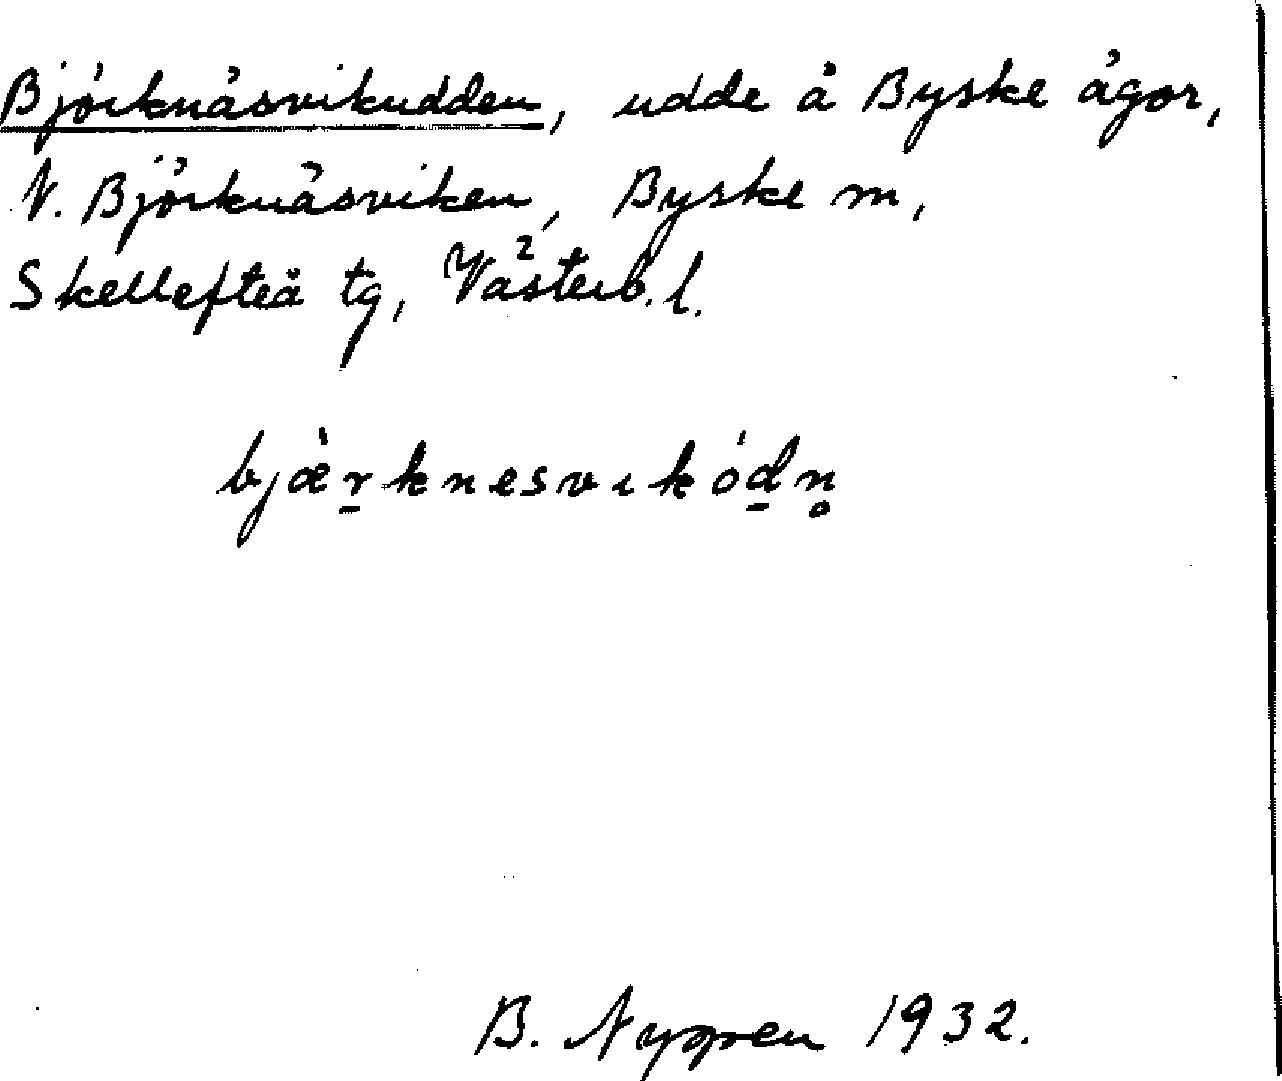 Björknäsvikudden, udde å Byske ägor,
V. Björknäsviken, Byske sn,
Skellefteå tg, Västerb. l.
bjærknesvikódn̥
B. Nygren 1932.